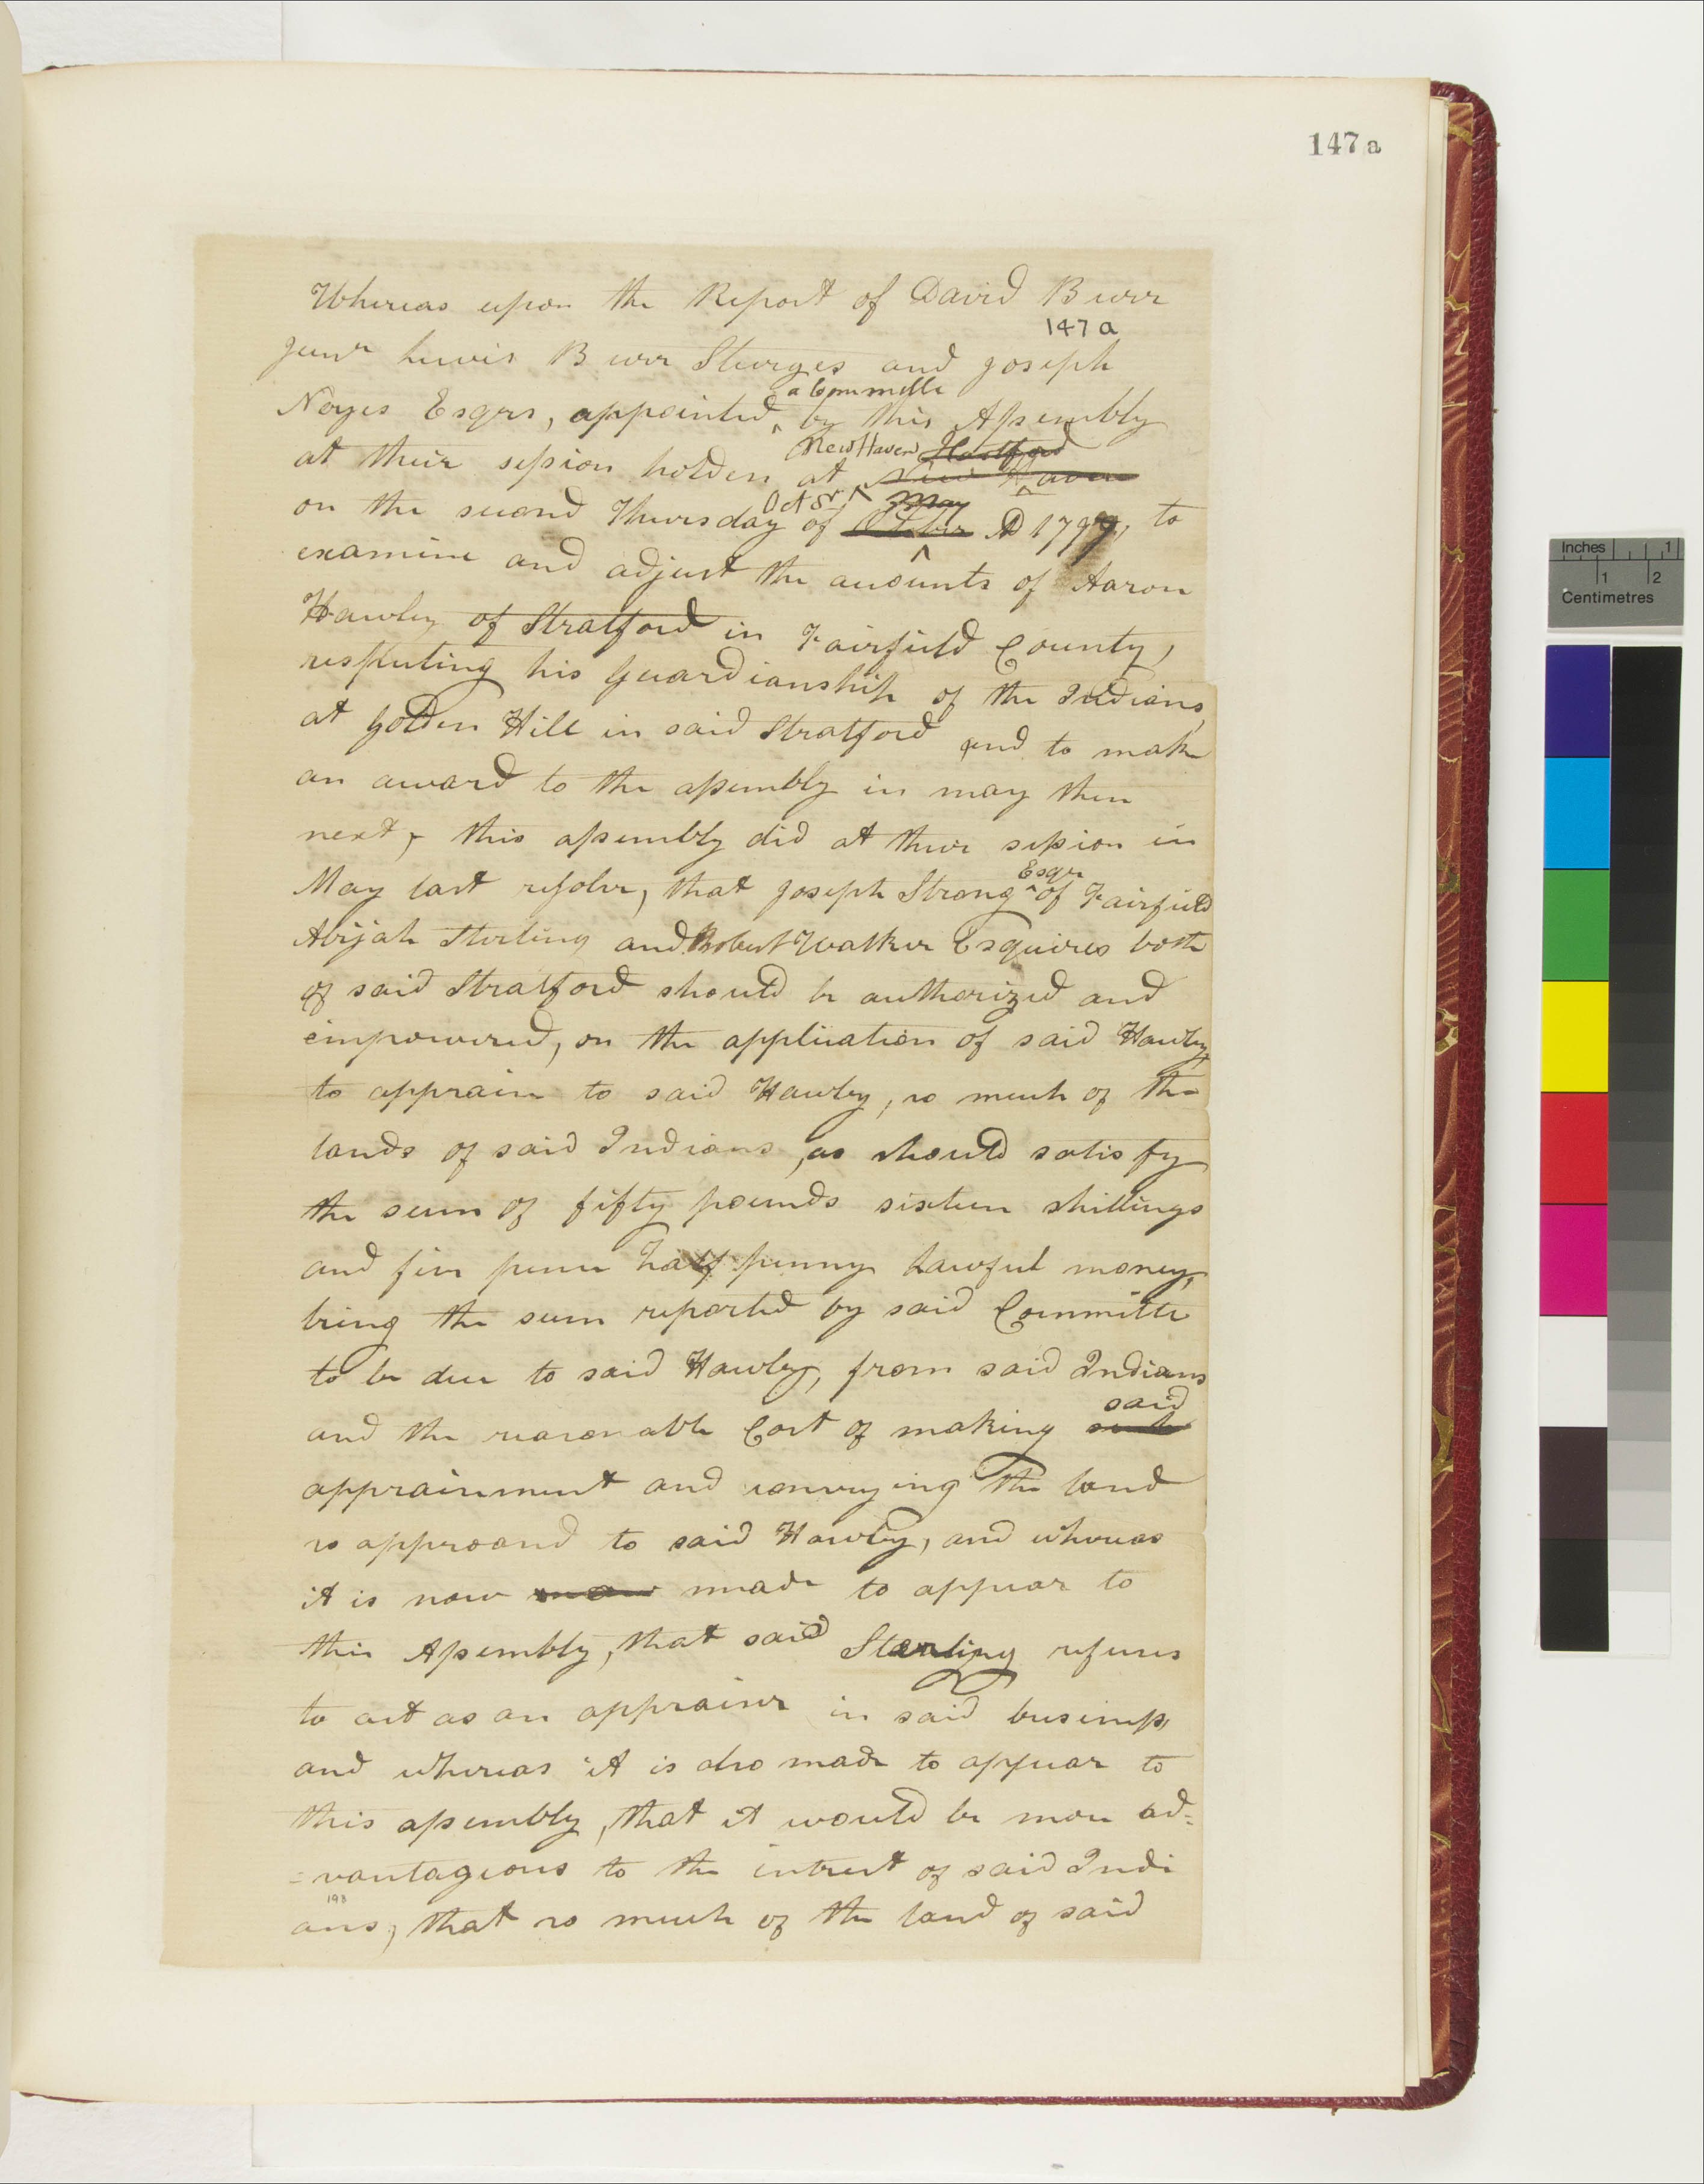 147a
Whereas upon the Report of David Burr
147 a
Junr Lewis Burr Sturges and Joseph
a Committee
Noyes Esqrs, appointed by this Assembly
New Haven Hartford
at their session holden at New Haven
Octbr May
on the second Thursday of October AD 1797, to
examine and adjust the accounts of Aaron
Hawley of Stratford in Fairfield County,
respecting his Guardianship of the Indians,
at Golden Hill in said Stratford and to make
an award to the assembly in may then
next, this assembly did at their session in
Esqr
May last resolve, that Joseph Strong of Fairfield
Abijah Sterling and Robert Walker Esquires both
of said Stratford should be authorized and
empowered, on the application of said Hawley,
to appraise to said Hawley, so much of the
lands of said Indians, as should satisfy
the sum of fifty pounds sixteen shillings
and five pence half penny Lawful money,
being the sum reported by said Committee
to be due to said Hawley, from said Indians
said
and the reasonable Cost of making such
appraisement and conveying the land
so appraised to said Hawley, and whereas
it is now made to appear to
this Assembly, that said Sterling refuses
to act as an appraiser in said business,
and whereas it is also made to appear to
this assembly, that it would be more ad=
=vantageous to the intrest of said Indi
193
ans, that so much of the land of said
Inches 1
1 2
Centimetres